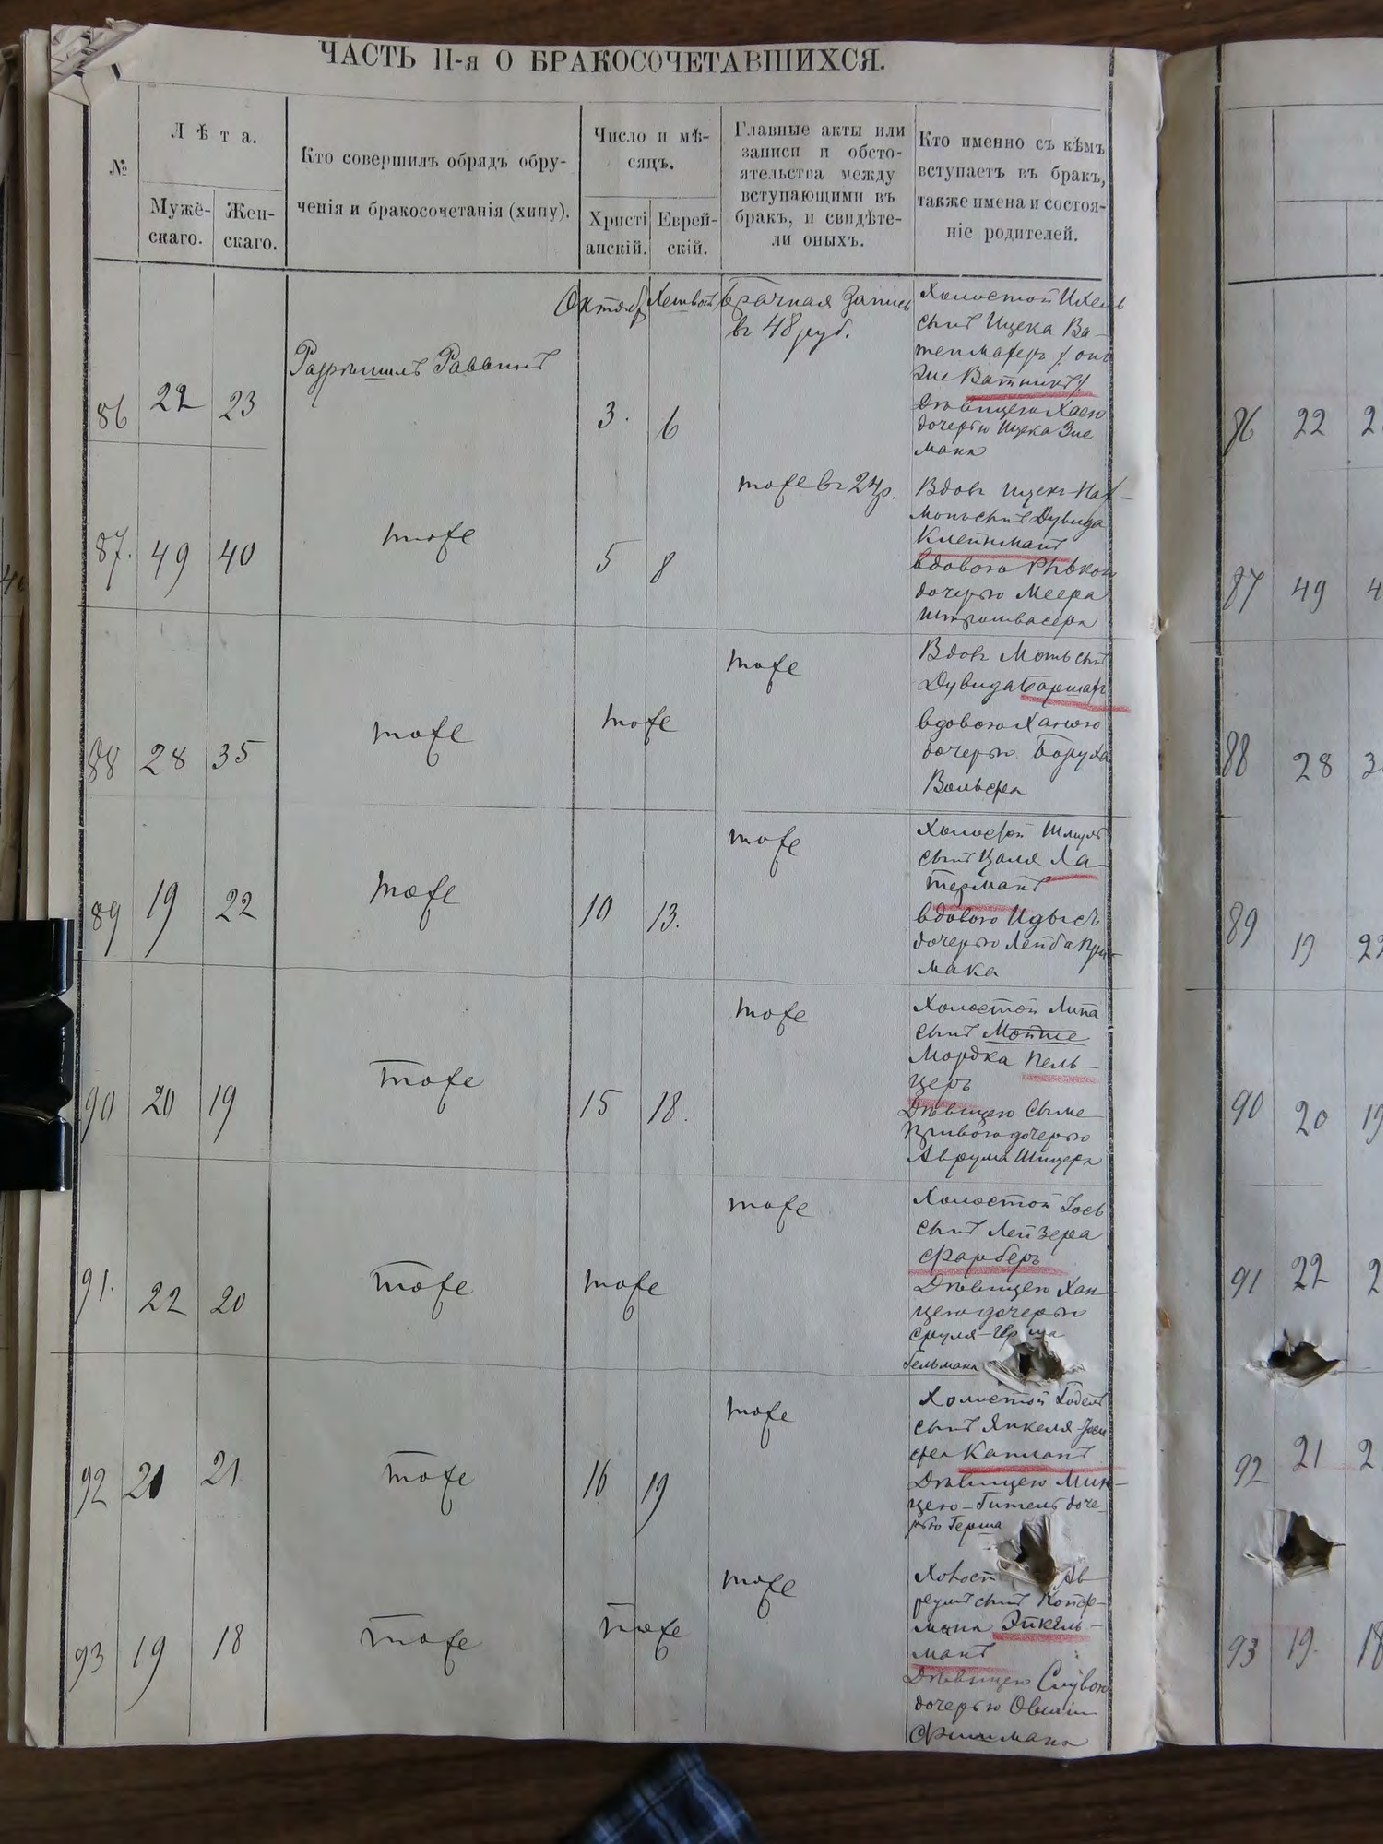 ЧАСТЬ II-я О БРАКОСОЧЕТАВШИХСЯ.
№
Лѣта.
Мужескаго.
Женскаго.
Кто совершилъ обрядъ обрученія и бракосочетанія (хипу).
Число и мѣсяцъ.
Христіанскій.
Еврейскій.
Главные акты или
записи и обсто-
ятельства между
вступающими въ
бракъ, и свидѣте-
ли оныхъ.
Кто именно съ кѣмъ
вступаетъ въ бракъ,
также имена и состоя-
ніе родителей.
86
22
23
Разрѣшилъ Раввинъ
Октябр
3.
6
Брачная Запись
въ 48 руб.
Холостой
сынъ Ицека Ва-
тенмахеръ
Дѣвицею Хаею
дочерью Ицека Зис
мана
87.
49
40
тоже
5
8
тоже въ 24 р.
Вдовъ Ицекъ Нах-
сынъ Дувида
Клейнманъ
вдовою Рывкою
дочерью Меера
88
28
35
тоже
тоже
тоже
Вдовъ Моть сынъ
Дувида
вдовою Ханою
дочерью Боруха
Вольфа
89
19
22
тоже
10
13.
тоже
Холостой Шмуль
сынъ Цаля Ха-
терманъ
вдовою Идысъ
дочерью Лейба При-
мака
90
20
19
тоже
15
18.
тоже
Холостой Липа
сынъ Мойше
Мордка Пель-
церъ
Дѣвицею Сыме
дочерью
Аврума
91.
22
20
тоже
тоже
тоже
Холостой Іось
сынъ Лейзера
Фарберъ
Дѣвицею Хан-
цею дочерью
Сруля-Герша
Гельмана
92
21
21
тоже
16
19
тоже
Холостой Годель
сынъ Янкеля-Іосе
фа Капланъ
Дѣвицею Мин-
цею-Гитель доче-
рью Герша
93
19
18
тоже
тоже
тоже
Холост Ав
румъ сынъ Копф-
мана Эйхель-
манъ
Дѣвицею Слувою
дочерью Овши
Фишмана
86 22 2
87 49 4
88 28 3
89 19 22
90 20 19
91 22 2
92 21 2
93 19. 18